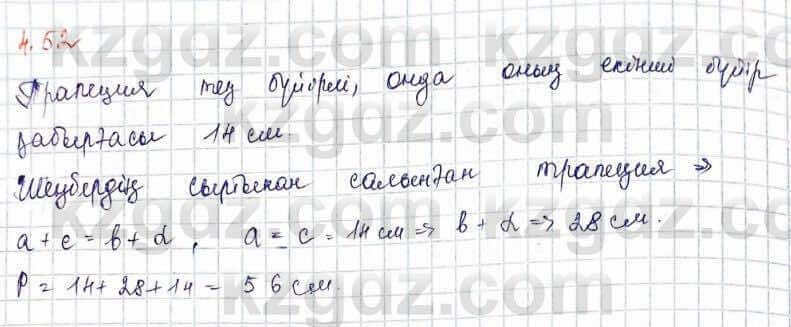 4.52
Трапеция тең бүйірлі, онда оның екінші бүйір
қабырғасы 14 см.
Шеңбердің сыртынан салынған трапеция =>
a + c = b + d, a = c = 14 см => b + d => 28 см.
P = 14 + 28 + 14 = 56 см.
kzgdz.com